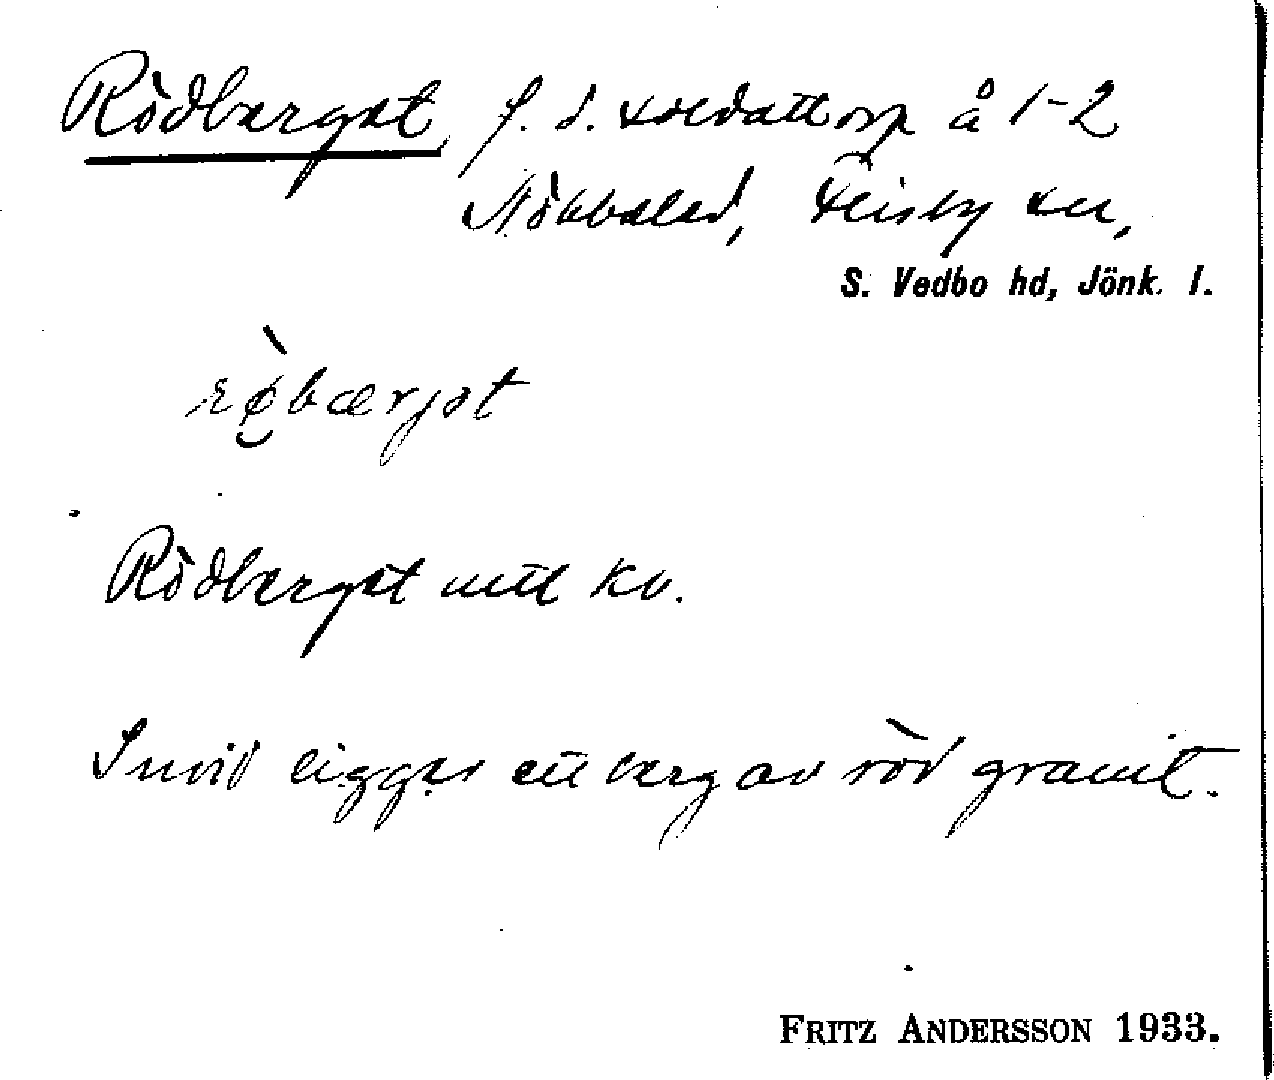 Rödberget f. d. soldattorp å 1-2
Flisby sn,
S. Vedbo hd, Jönk. l.
rø̀bærjət
Rödberget utt kv.
Invid ligger ett berg av röd granit.
FRITZ ANDERSSON 1933.